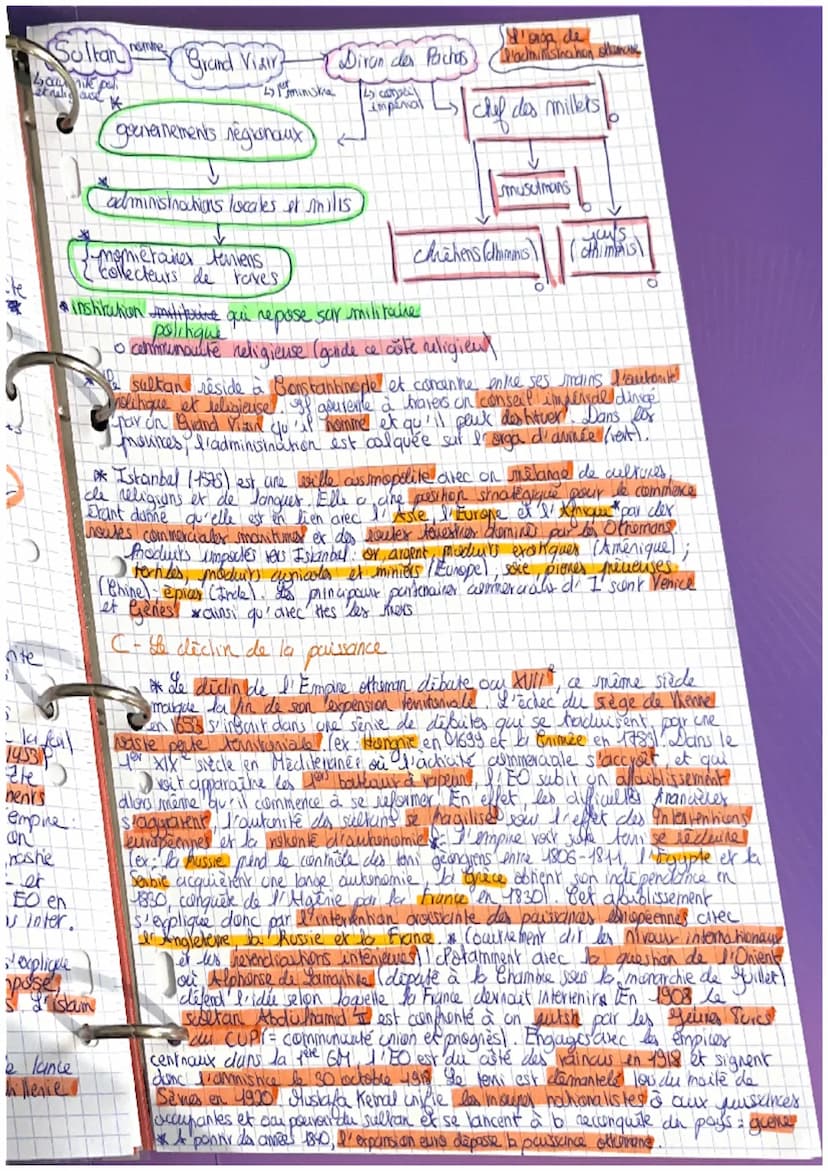 Sultan nomme Grand Vizir Divan des Pachas L'orga de l'administration ottomane
↳ autorité pol. et religieuse
↳ 1er ministre
↳ conseil impérial
chef des millets
gouvernements régionaux
musulmans
administrations locales et milis
chrétiens (dhimmis)
juifs (dhimmis)
collecteurs de taxes
* institution militaire qui repose sur militaire
politique
o communauté religieuse (garde ce côté religieux)
* Le sultan réside à Constantinople et concentre entre ses mains l'autorité
politique et religieuse. Il gouverne à travers un conseil impérial dirigé
par un Grand Vizir qu'il nomme et qu'il peut destituer. Dans les
provinces, l'administration est calquée sur l'orga d'armée (vert).
* Istanbul (1575) est une ville cosmopolite avec un mélange de cultures,
de religions et de langues. Elle a une position stratégique pour le commerce
Etant donné qu'elle est en lien avec l'Asie, l'Europe et l'Afrique* par des
routes commerciales maritimes et des routes terrestres dominés par les Ottomans.
Produits importés vers Istanbul : or, argent, produits exotiques (Amérique) ;
textiles, produits agricoles et miniers (Europe), soie, pierres précieuses
(Chine) ; épices (Inde). Les principaux partenaires commerciaux d'I sont Venise
et Gênes * ainsi qu'avec les mers
C - Le déclin de la puissance
* Le déclin de l'Empire ottoman débute au XVIIe, ce même siècle
marque la fin de son expension territoriale. L'échec du siège de Vienne
en 1683 s'inscrit dans une série de défaites qui se traduisent par une
vaste perte territoriale (ex : Hongrie en 1699 et la Crimée en 1783). Dans le
1er XIXe siècle en Méditerranée où l'activité commerciale s'accroit, et qui
voit apparaître les 1ers bateaux à vapeur, l'EO subit un affaiblissement
alors même qu'il commence à se réformer. En effet, les difficultés financières
s'aggravent, l'autorité des sultans se fragilise sous l'effet des interventions
européennes et la volonté d'autonomie*. L'empire voit son terri se réduire
(ex : la Russie prend le contrôle des terri géorgiens entre 1806-1811, l'Egypte et la
Serbie acquièrent une large autonomie, la Grèce obtient son indépendance en
1830, conquête de l'Algérie par la France en 1830). Cet affaiblissement
s'explique donc par l'intervention croissante des puissances européennes avec
l'Angleterre, la Russie et la France. * (autrement dit les rivaux internationaux
et les revendications intérieures) (Notamment avec la question de l'Orient
où Alphonse de Lamartine (député à la Chambre sous la monarchie de Juillet)
défend l'idée selon laquelle la France devrait intervenir. En 1908 le
sultan Abdülhamid II est confronté à un putsh par les Jeunes Turcs
du CUP (= communauté union et progrès). Engagés avec les empires
centraux dans la 1ère GM, l'EO est du côté des vaincus en 1918 et signent
donc l'armistice le 30 octobre 1918. Le terri est démantelé lors du traité de
Sèvres en 1920. Mustafa Kemal unifie les troupes nationalistes ô aux puissances
occupantes et au pouvoir du sultan et se lancent à la reconquête du pays : guerre
* A partir des années 1840, l'expansion euro dépasse la puissance ottomane.